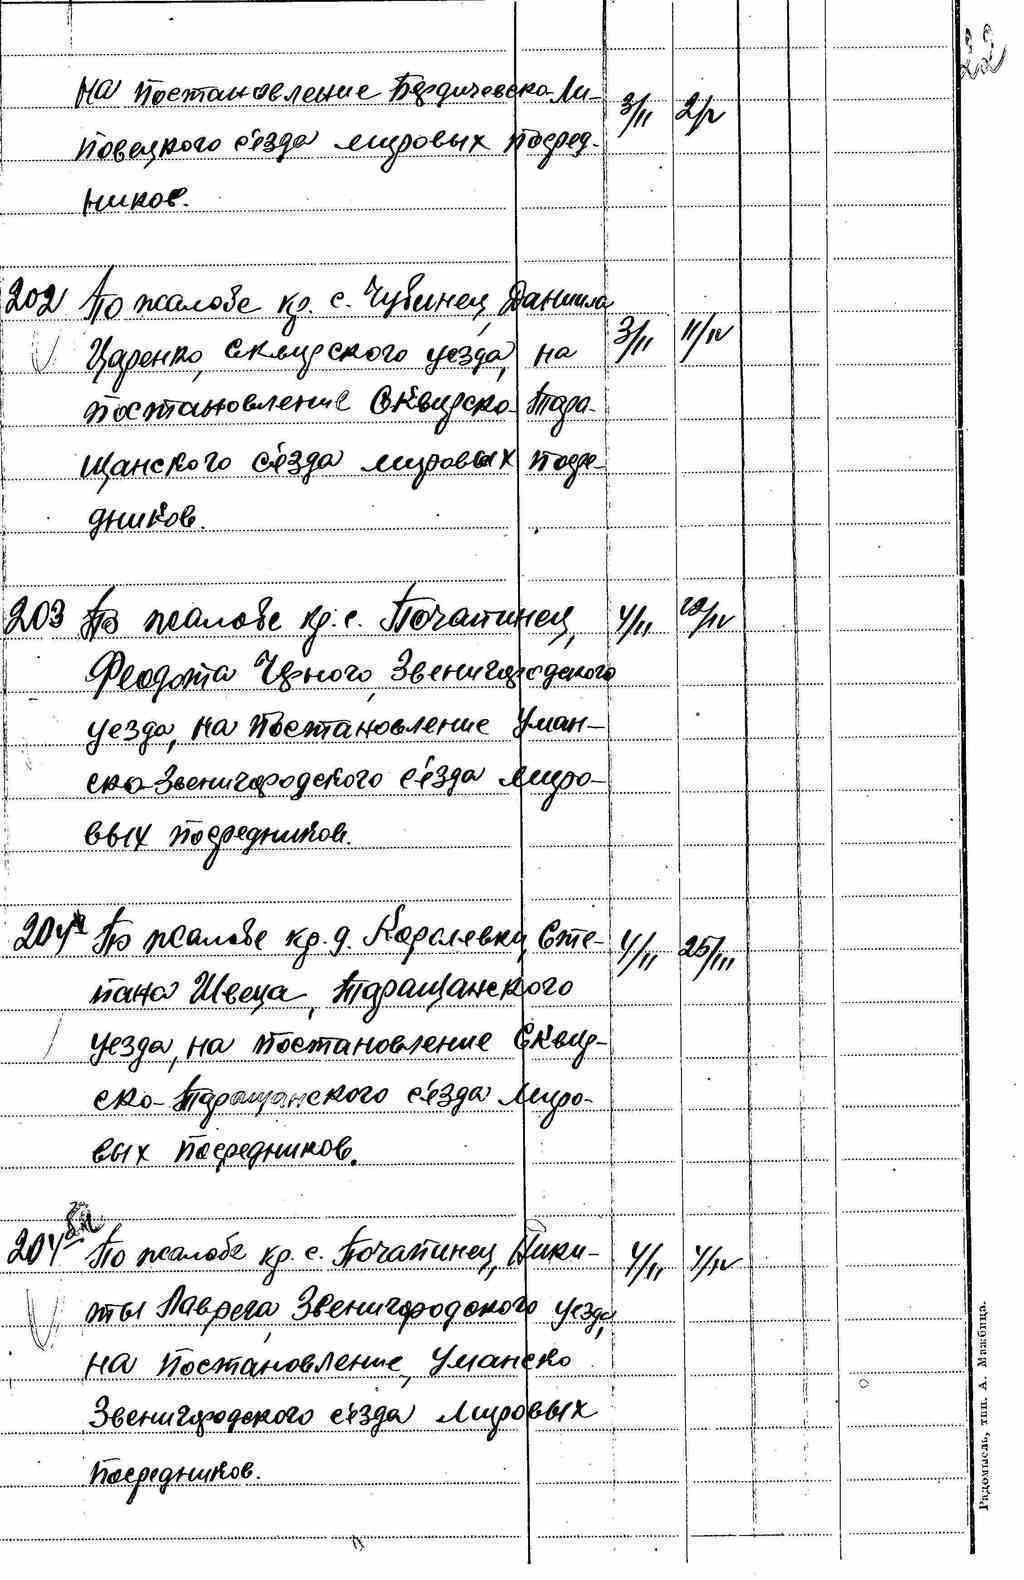 22
на постановление Бердичевско-Ли- 3/II 2/V
повецкого с'езда мировых посред-
ников.
202 По жалобе кр. с. Чубинец, Даниила
Царенко, Сквирского уезда, на 3/II 11/IV
постановление Сквирско-Тара-
щанского с'езда мировых посре-
дников.
203 По жалобе кр. с. Почапинец, 4/II
Феодота Черного, Звенигородского
уезда, на постановление Уман-
ско-Звенигородского с'езда миро-
вых посредников.
204а По жалобе кр. д. Королевки, Сте- 4/II 25/III
пана Швеца, Таращанского
уезда, на постановление Сквир-
ско-Таращанского с'езда миро-
вых посредников.
204 По жалобе кр. с. Почапинец, Ники- 4/II 4/IV
ты Лаврега, Звенигородского уезда,
на постановление, Уманско
Звенигородского с'езда мировых
посредников.
Радомысль, тип. А. Мажбица.